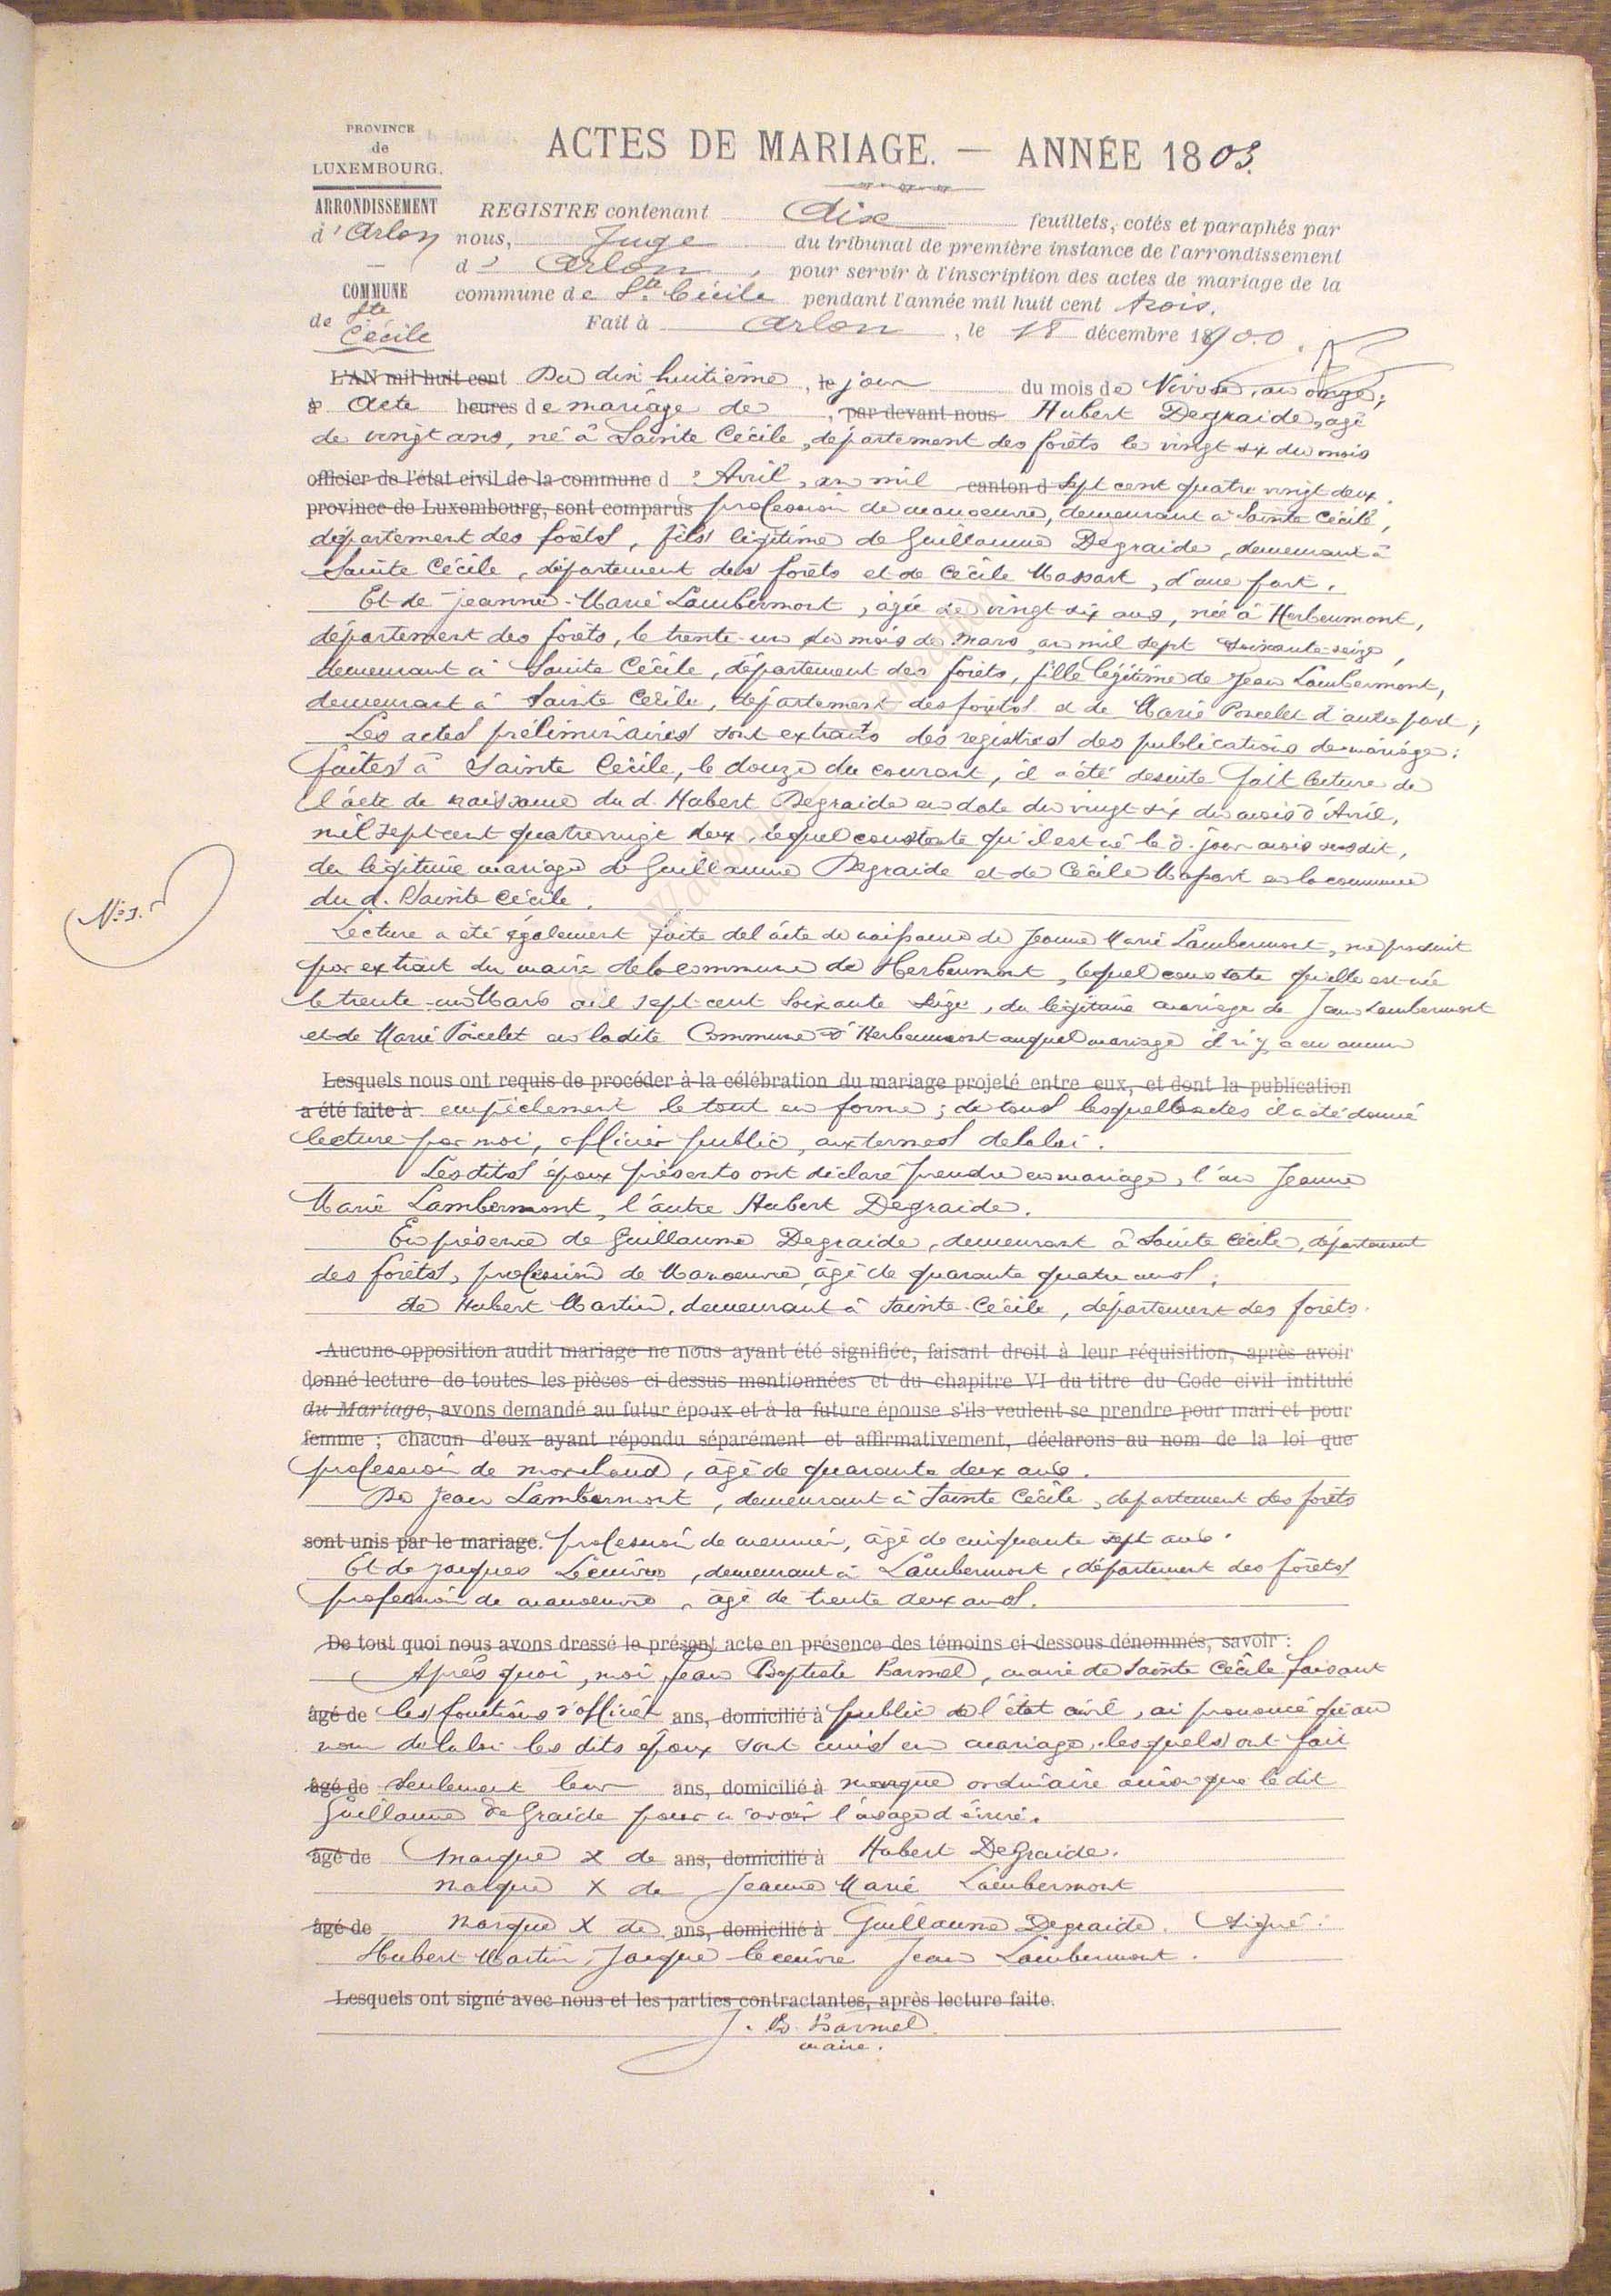 PROVINCE
de
LUXEMBOURG.
ARRONDISSEMENT
d'Arlon
COMMUNE
de Ste
Cécile
ACTES DE MARIAGE. — ANNÉE 1803.
REGISTRE contenant dix feuillets, cotés et paraphés par
nous, Juge du tribunal de première instance de l'arrondissement
d' Arlon, pour servir à l'inscription des actes de mariage de la
commune de Ste Cécile pendant l'année mil huit cent trois.
Fait à Arlon, le 18 décembre 1900.
L'AN mil huit cent Du dix huitième, le jour du mois de Nivose, an onze;
à Acte heures de mariage de, par devant nous Hubert Degraide, agé
de vingt ans, né à Sainte Cécile, département des forêts le vingt six du mois
officier de l'état civil de la commune d'Avril, an mil canton d sept cent quatre vingt deux.
province de Luxembourg, sont comparus profession de manoeuvre, demeurant à Sainte Cécile,
département des forêts, fils légitime de Guillaume Degraide, demeurant à
Sainte Cécile, département des forêts et de Cécile Massart, d'une part.
Et de Jeanne-Marie Lambermont, agée de vingt six ans, née à Herbeumont,
département des forêts, le trente-un du mois de mars an mil sept soixante-seize,
demeurant à Sainte Cécile, département des forêts, fille légitime de Jean Lambermont,
demeurant à Sainte Cécile, département des forêts et de Marie Poncelet d'autre part;
Les actes préliminaires sont extraits des registres des publications de mariage:
faites à Sainte Cécile, le douze du courant, il a été desuite fait lecture de
l'acte de naissance du d. Hubert Degraide en date du vingt six du mois d'Avril,
mil sept cent quatre vingt deux, lequel constate qu'il est né le d. jour mois susdit,
du légitime mariage de Guillaume Degraide et de Cécile Massart en la commune
du d. Sainte Cécile.
N° 1.
Lecture a été également faite del'acte de naissance de Jeanne Marie Lambermont, me produit
par extrait du maire de la commune de Herbeumont, lequel constate qu'elle est née
le trente-un Mars mil sept-cent Soixante Seize, du légitime mariage de Jean Lambermont
et de Marie Poncelet en ladite Commune d'Herbeumont auquel mariage il n'y a eu aucun
Lesquels nous ont requis de procéder à la célébration du mariage projeté entre eux, et dont la publication
a été faite à empêchement le tout en forme; de tous lesquels actes il a été donné
lecture par moi, officier public, aux termes de la loi.
Lesdits époux présents ont déclaré prendre en mariage, l'un Jeanne
Marie Lambermont, l'autre Hubert Degraide.
En présence de Guillaume Degraide, demeurant à Sainte Cécile, département
des forêts, profession de Manoeuvre, âgé de quarante quatre ans.
de Hubert Martin, demeurant à Sainte-Cécile, département des forêts.
Aucune opposition audit mariage ne nous ayant été signifiée, faisant droit à leur réquisition, après avoir
donné lecture de toutes les pièces ci-dessus mentionnées et du chapitre VI du titre du Code civil intitulé
du Mariage, avons demandé au futur époux et à la future épouse s'ils veulent se prendre pour mari et pour
femme ; chacun d'eux ayant répondu séparément et affirmativement, déclarons au nom de la loi que
profession de marchand, âgé de quarante deux ans.
De Jean Lambermont, demeurant à Sainte Cécile, département des forêts
sont unis par le mariage. profession de meunier, âgé de cinquante sept ans.
Et de Jacques Lecuivre, demeurant à Lambermont, département des forêts
profession de manoeuvre, âgé de trente deux ans.
De tout quoi nous avons dressé le présent acte en présence des témoins ci-dessous dénommés, savoir :
Après quoi, moi Jean Baptiste Barmel, maire de Sainte Cécile faisant
âgé de les fonctions d'officier ans, domicilié à public de l'état civil, ai prononcé qu'au
nom de la loi les dits époux sont unis en mariage, lesquels ont fait
âgé de Seulement leur ans, domicilié à marque ordinaire ainsi que le dit
Guillaume deGraide pour n'avoir l'usage d'écrire.
âgé de Marque X de ans, domicilié à Hubert DeGraide.
Marque X de Jeanne Marie Lambermont
âgé de Marque X de ans, domicilié à Guillaume Degraide. Signé:
Hubert Martin, Jacque lecuivre Jean Lambermont.
Lesquels ont signé avec nous et les parties contractantes, après lecture faite.
J. B. Barmel
maire.